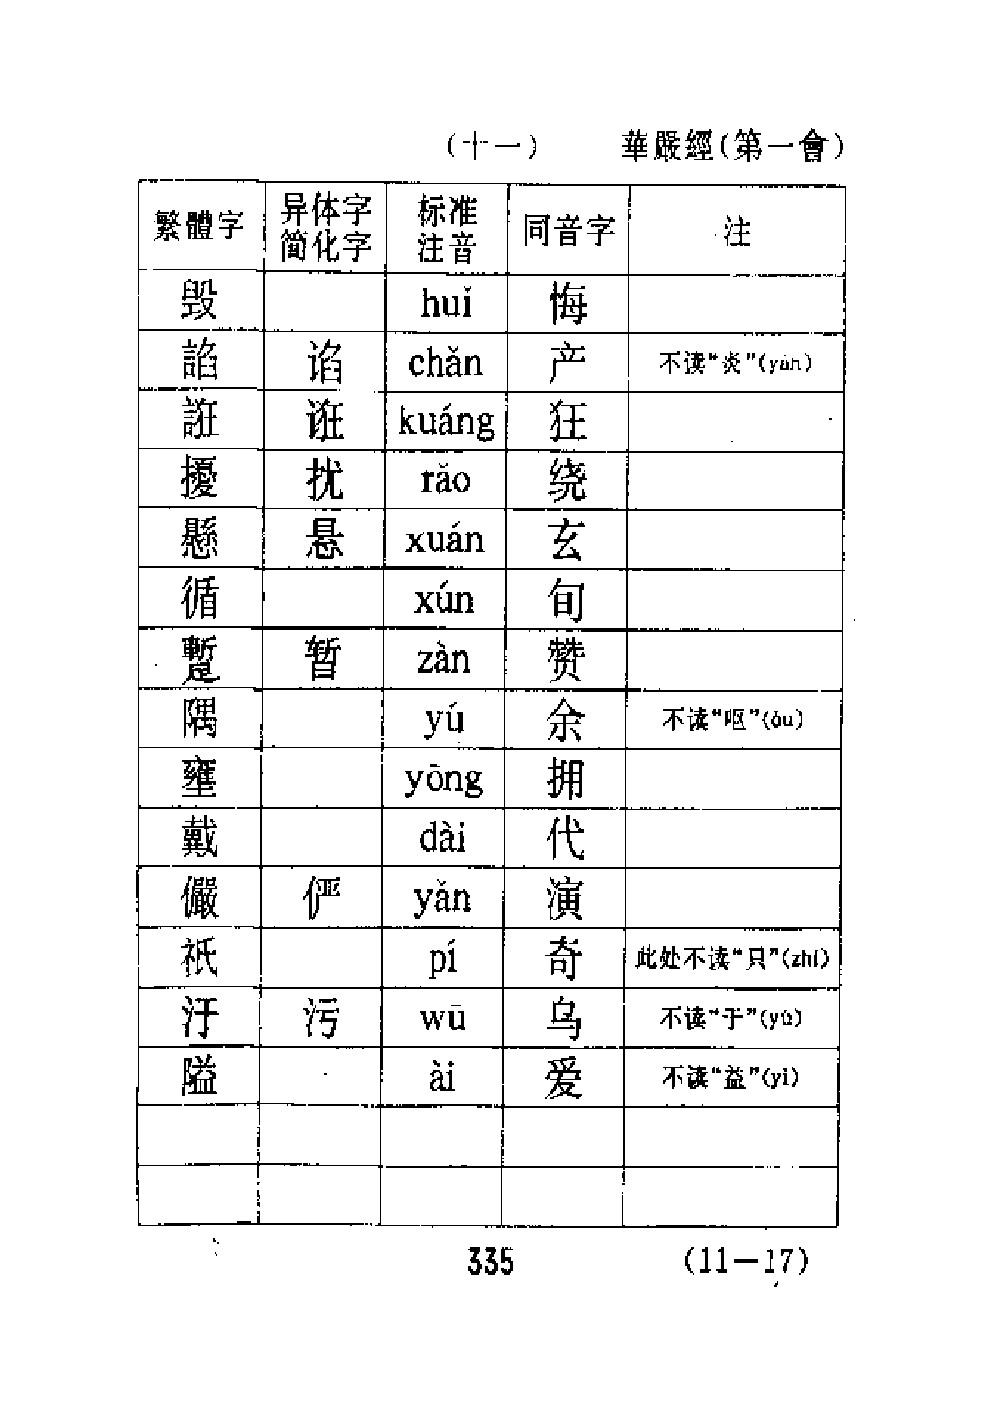 (十一) 華嚴經(第一會)
繁體字 异体字简化字 标准注音 同音字 注
毁 huǐ 悔
諂 谄 chǎn 产 不读“炎”(yán)
誑 诳 kuáng 狂
擾 扰 rǎo 绕
懸 悬 xuán 玄
循 xún 旬
蹔 暂 zàn 赞
隅 yú 余 不读“呕”(ǒu)
壅 yōng 拥
戴 dài 代
儼 俨 yǎn 演
祇 pí 奇 此处不读“只”(zhǐ)
汙 污 wū 乌 不读“于”(yú)
隘 ài 爱 不读“益”(yì)
335 (11—17)